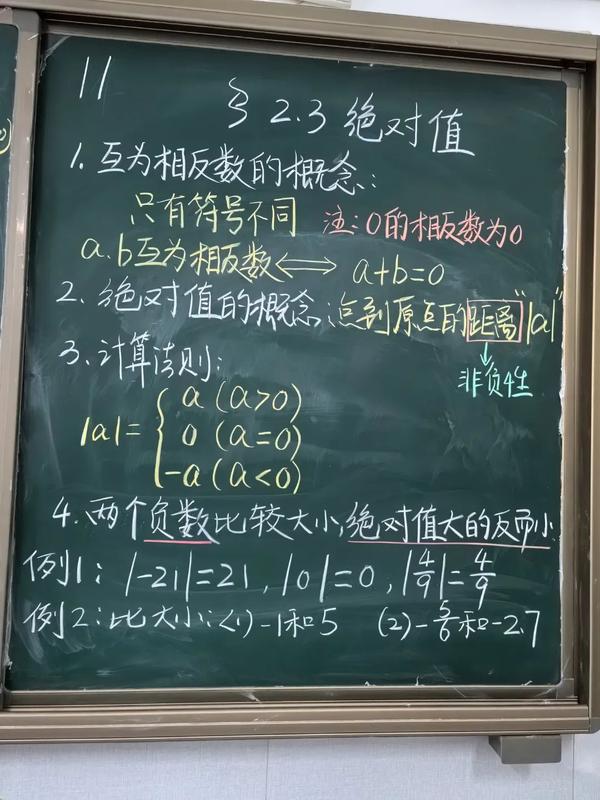 11
§ 2.3 绝对值
1. 互为相反数的概念:
只有符号不同 注:0的相反数为0
a.b互为相反数⟺a+b=0
2. 绝对值的概念:点到原点的距离"|a|"
↓
非负性
3. 计算法则:
|a|={ a (a>0)
0 (a=0)
-a (a<0)
4. 两个负数比较大小,绝对值大的反而小
例1: |-21|=21, |0|=0, |4/9|=4/9
例2:比大小:(1)-1和5 (2)-5/6和-2.7